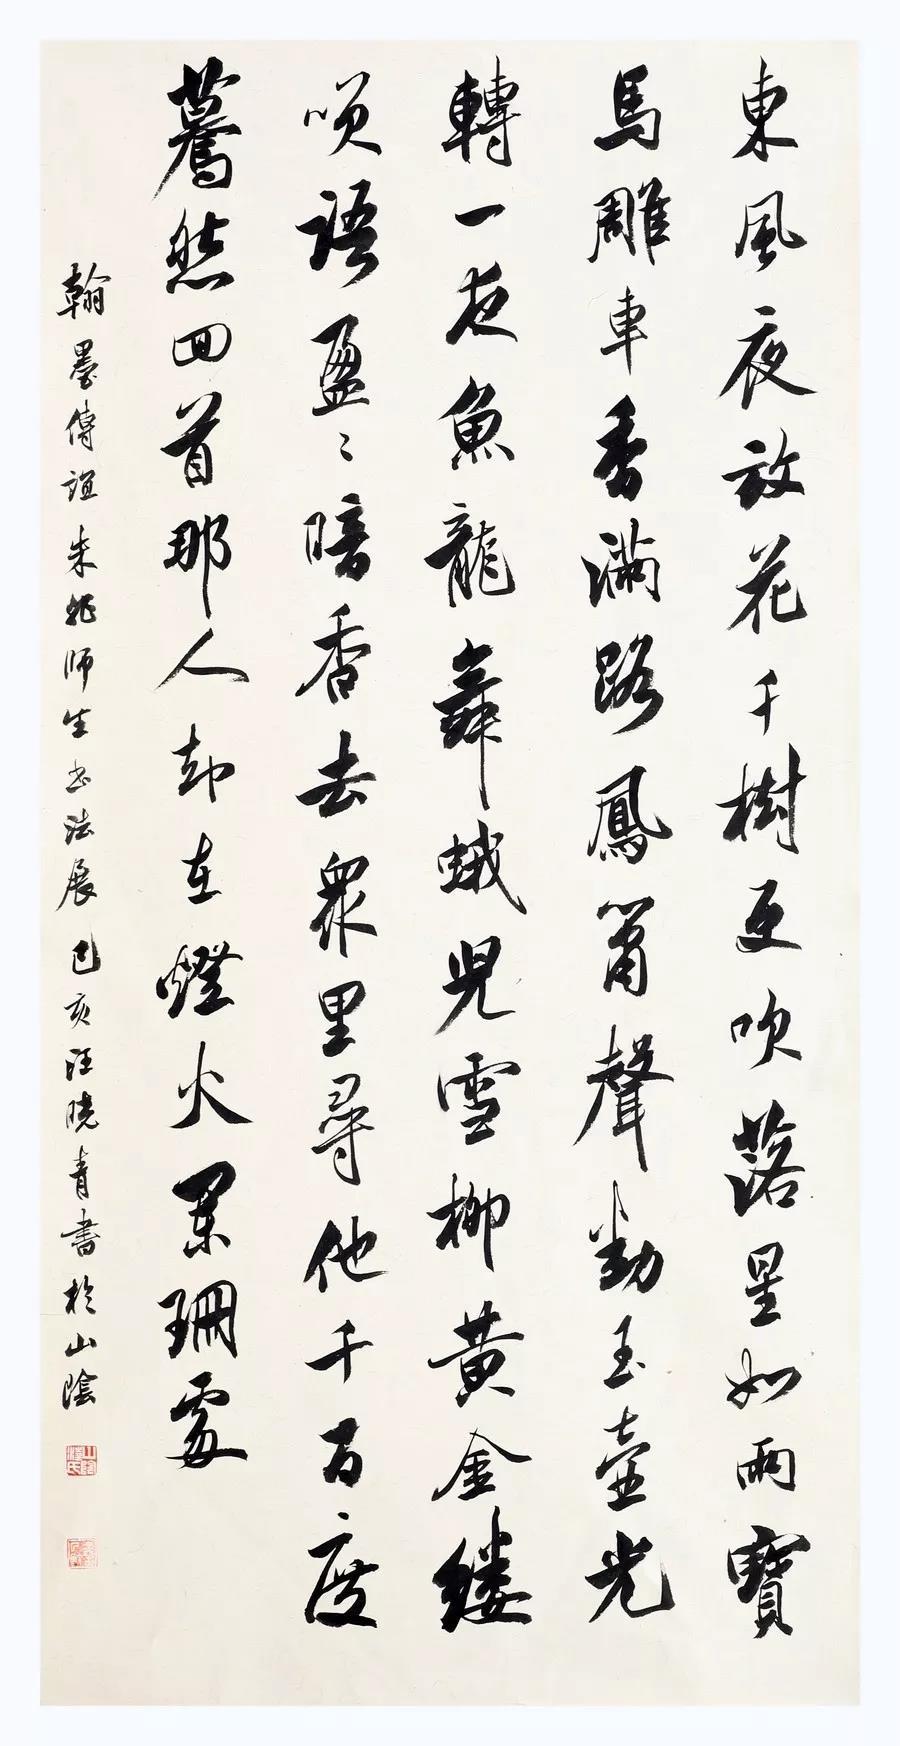 東風夜放花千樹更吹落星如雨寶
馬雕車香滿路鳳簫聲動玉壺光
轉一夜魚龍舞蛾兒雪柳黃金縷
笑語盈〻暗香去衆里尋他千百度
驀然回首那人却在燈火闌珊處
翰墨傳誼朱非師生書法展己亥汪曉青書於山陰